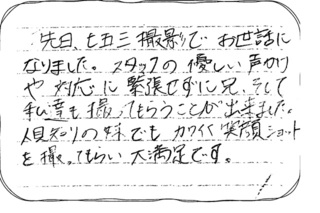 先日、七五三撮影でお世話に
なりました。スタッフの優しい声かけ
や対応に緊張せずに兄、そして
私達も撮ってもらうことが出来ました。
人見知りの妹でもカワイく笑顔ショット
を撮ってもらい大満足です。